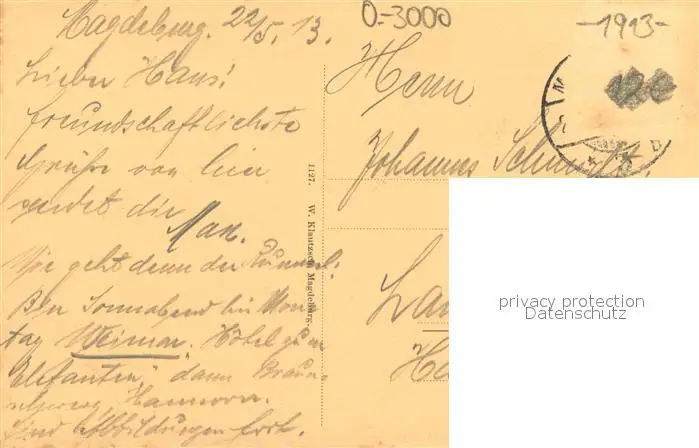 Magdeburg. 22/5. 13.
Lieber Hans!
Freundschaftlichste
Grüße von hier
sendet dir
Max.
Wie geht denn der Rummel.
Bin Sonnabend bis Mon-
tag Weimar. Hotel zum
Elefanten," dann Braun-
schweig, Hannover.
Und Abbildungen fort.
1127. W. Klautzsch, Magdeburg.
0.-3000
-1913-
Herrn
Johannes Schmidt.
privacy protection
Datenschutz